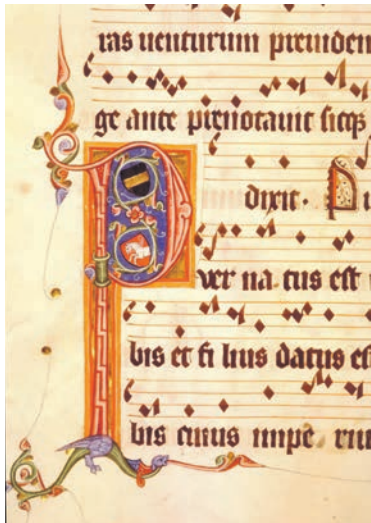 ras uenturum preuiden
ge ante prenotauit sicqs
dixit. Pu
Puer na tus est
bis et fi lius datus es
bis cuius impe riu